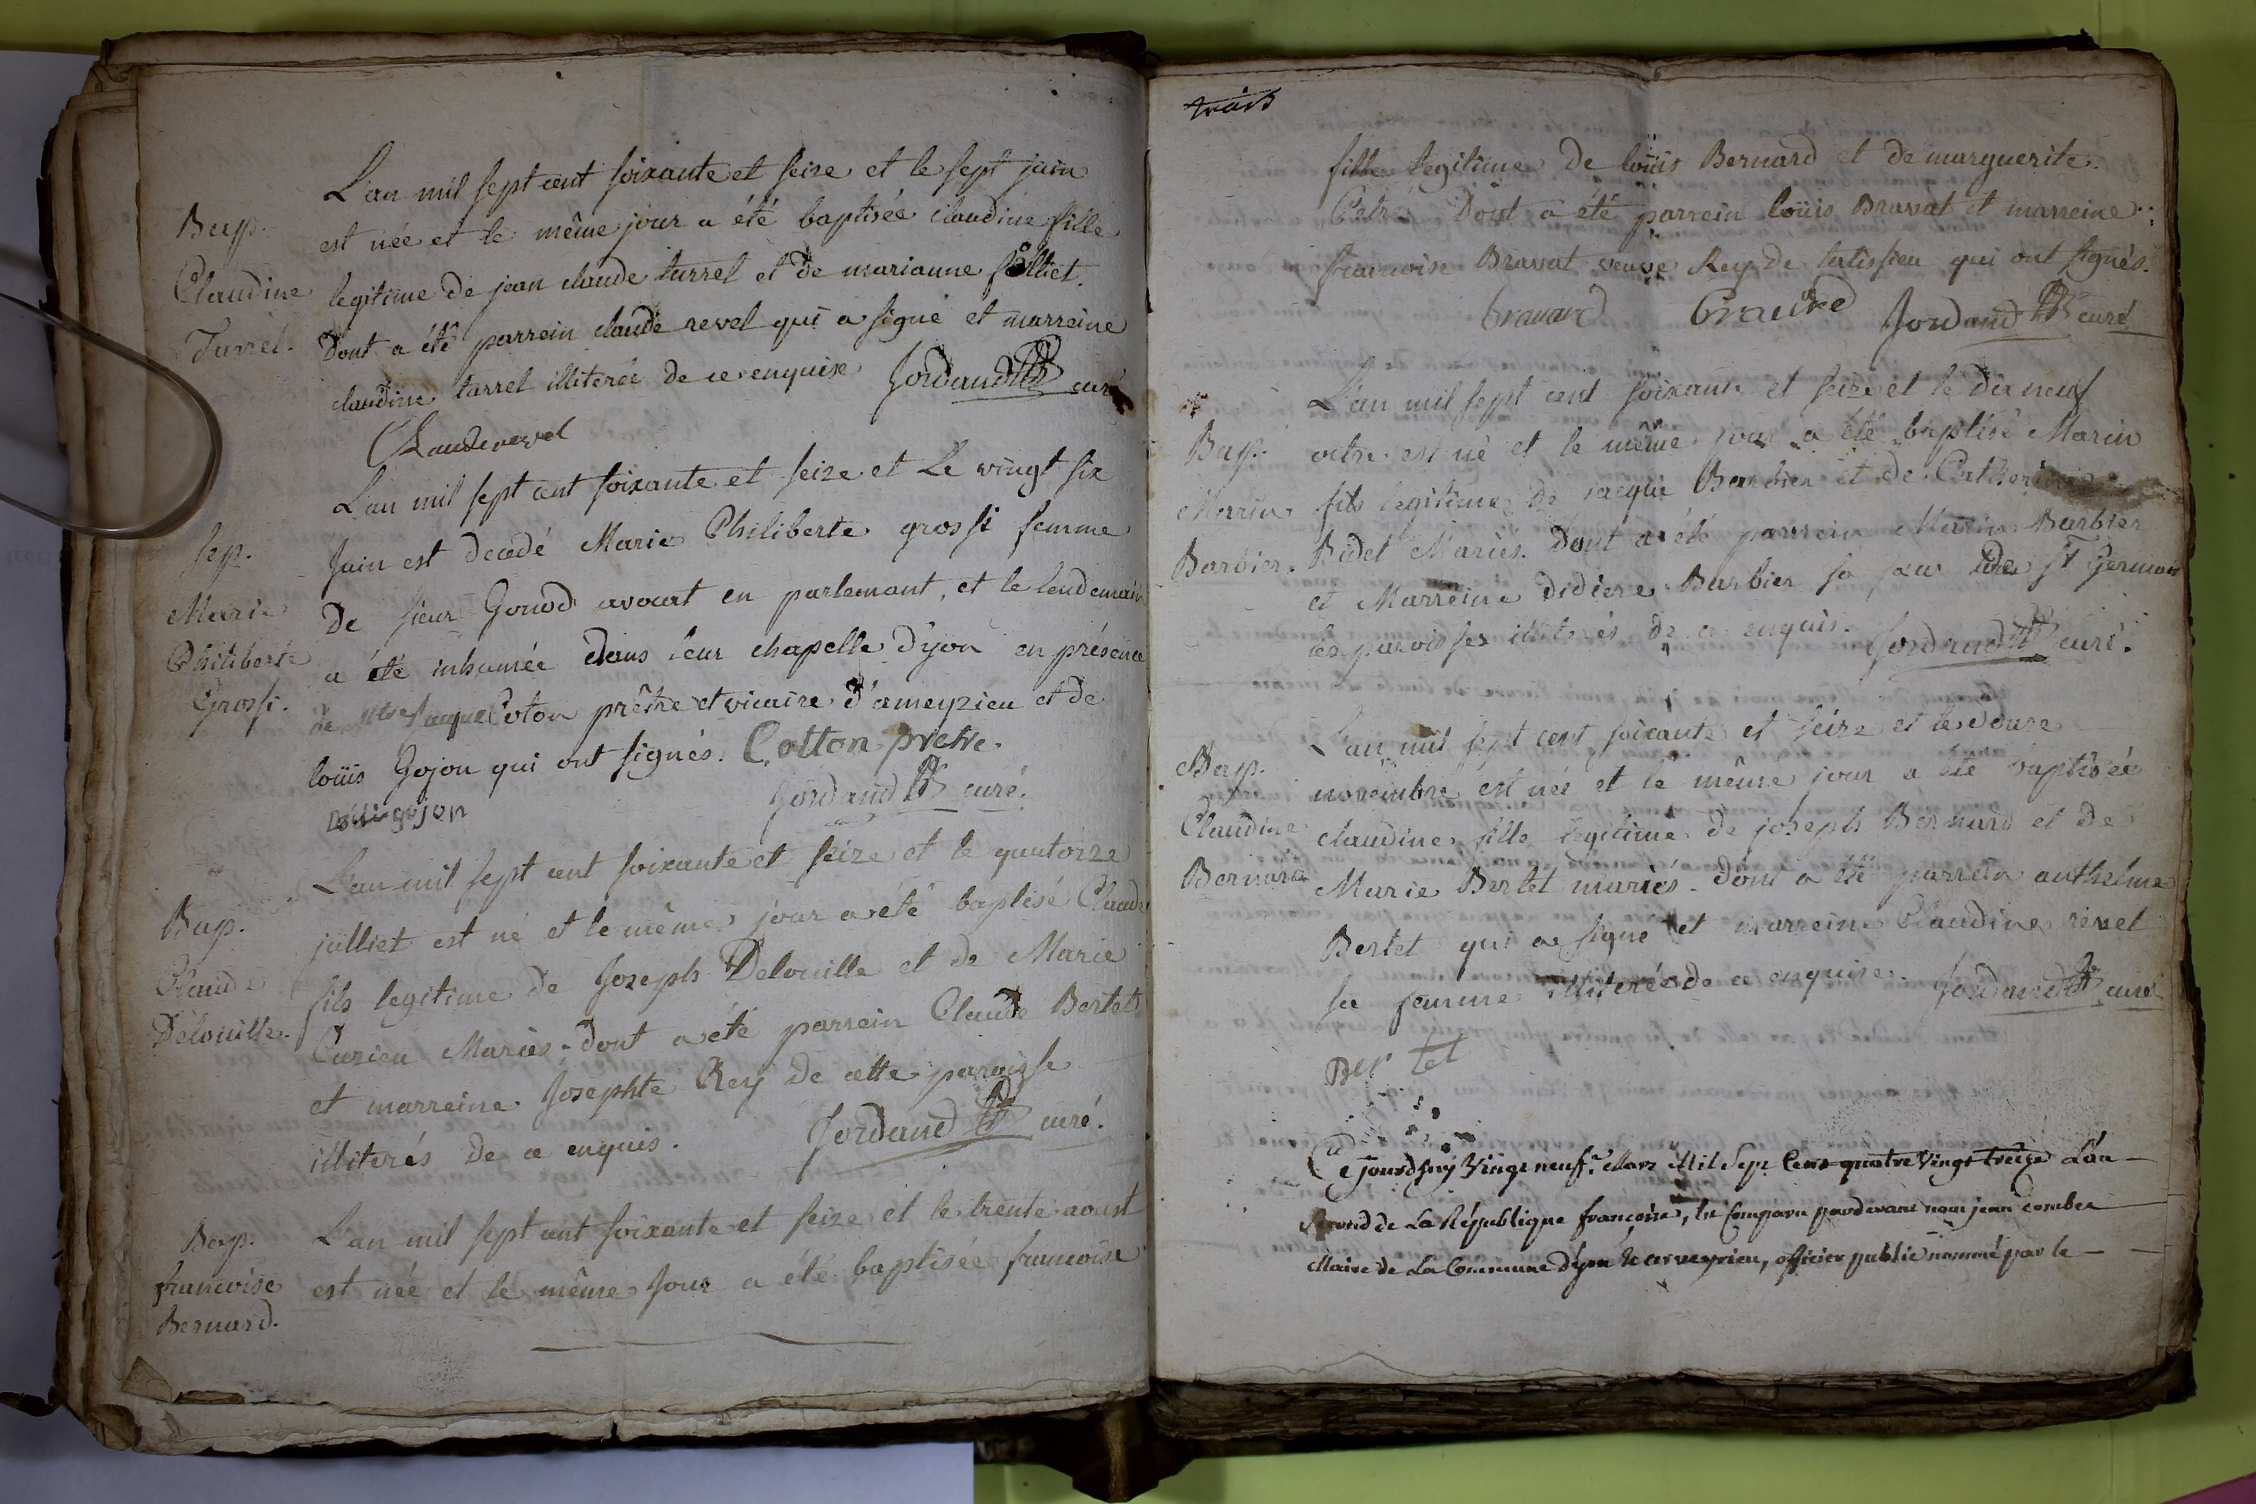 L'an mil sept cent soixante et seize et le sept juin
Bap. est née et le même jour a été baptisée claudine fille
Claudine legitime de jean claude turrel et de marianne
Turrel. Dont a été parrein claude revel qui a signé et marreine
claudine turrel illiterée de ce enquise Jordand curé
Claude revel
L'an mil sept cent soixante et seize et Le vingt six
Sep. Juin est decedé Marie Philiberte grossi femme
Marie De sieur Goujod avocat en parlemant, et le lendemain
Philiberte a été inhumée dans leur chapelle d'yon en présence
Grossi. de jacque Coton prêtre et vicaire d'ameyzieu et de
loüis Gojon qui ont signés. Cotton pretre.
Jordand curé.
gojon
L'an mil sept cent soixante et seize et le quatorze
Bap. juilliet est né et le même jour a été baptisé Claude
Claude fils legitime de Joseph Delouille et de Marie
Delouille. Curieu Mariés. dont a été parrein Claude Bertet
et marreine Josephte Rey de cette paroisse
illiterés de ce enquis. Jordand curé.
Bap. L'an mil sept cent soixante et seize et le trente aoust
francoise est née et le même Jour a été baptisée francoise
Bernard.
trois
fille legitime de loüis Bernard et de marguerite
Dont a été parrein loüis Bravat et marreine
francoise Bravat veuve Rey de talissieu qui ont signés.
Jordand curé
L'an mil sept cent soixante et seize et le dix neuf
Bap. octre est né et le même jour a été baptisé Marin
Marin fils legitime de jacque Barbier et de Catherine
Barbier. Bidet Mariés. Dont a été parrein Marin Barbier
et Marreine didiere Barbier sa de St Germain
les paroisses illiterés de ce enquis. Jordand curé.
L'an mil sept cent soixante et seize et le douze
Bap. novembre est née et le même jour a été baptisée
Claudine claudine fille legitime de joseph Bernard et de
Bernard Marie Bertet mariés. dont a été parrein anthelme
Bertet qui a signé et marreine Claudine revel
sa femme illiterée de ce enquise. Jordand curé
Bertet
Ce jourdhuy Vingt neuf Mars Mil Sept Cent quatre Vingt treize L'an
Second de La République françoise, est Comparu pardevant nous jean comber
Maire de La Commune d'yon &amp; arveyrieu, officier public nommé par le